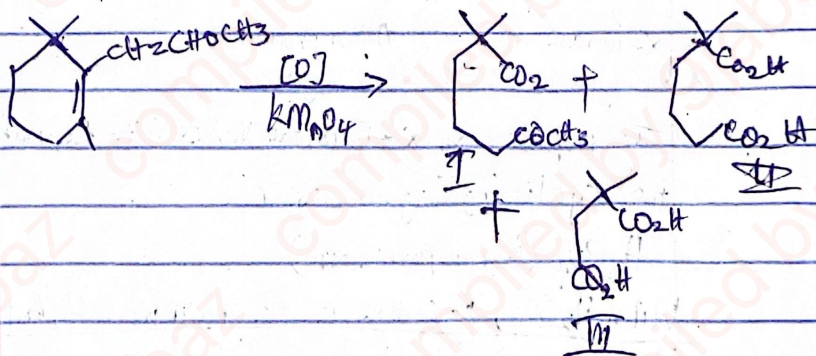 CH2CHOCH3
[O]
KMnO4
CO2 +
COCH3
I
CO2H
CO2H
II
+
CO2H
CO2H
III